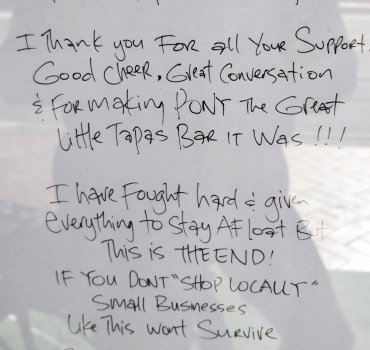 I Thank you For all Your Support.
Good Cheer, Great Conversation
& For making PONY The Great
Little Tapas Bar it was !!!
I have Fought hard & given
everything to Stay Afloat But
This is THE END!
IF YOU DONT "SHOP LOCALLY"
Small Businesses
Like This wont Survive